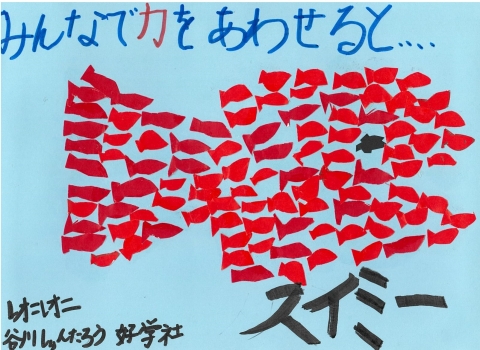 みんなで力をあわせると....
スイミー
レオ=レオニ
谷川しゅんたろう 好学社